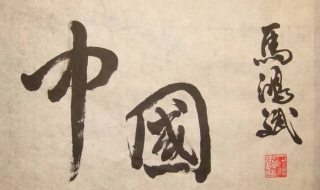 中國
馬鴻斌